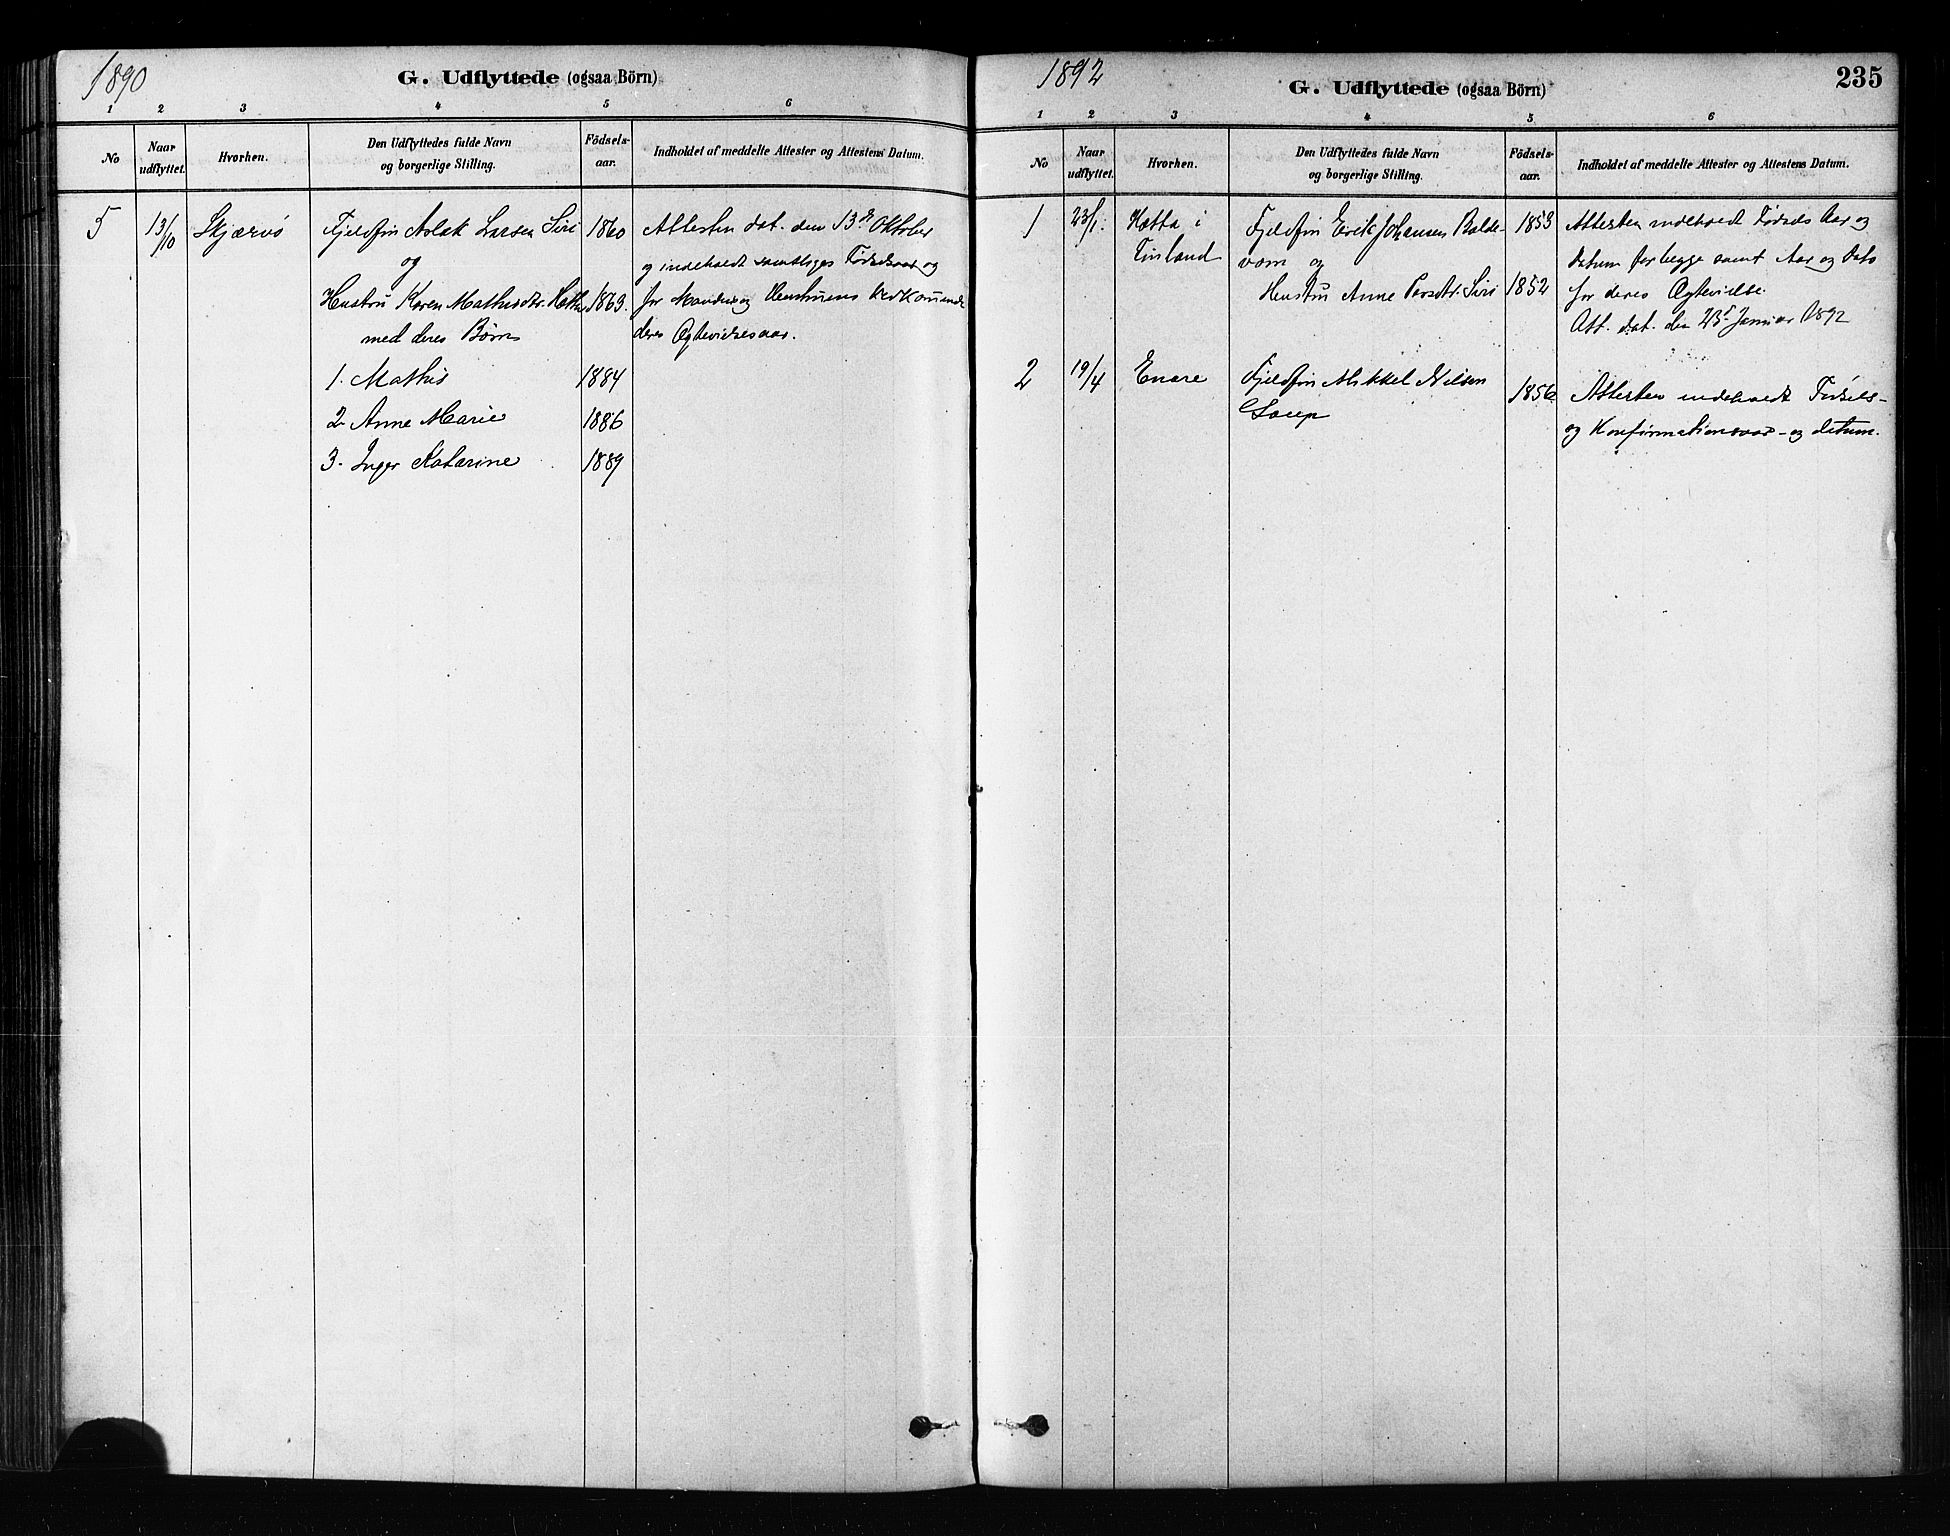 1890
G. Udflyttede (ogsaa Börn)
1 2 3 4 5 6
No
Naar udflyttet.
Hvorhen.
Den Udflyttedes fulde Navn og borgerlige Stilling.
Födsels-aar.
Indholdet af meddelte Attester og Attestens Datum.
5 13/10 Skjærvö Fjeldfin Aslak Larsen Siri 1860 Attesten dat. den 13de Oktober
og og indeholdt samtliges Fødselsaar og
Hustru Karen Mathisdtr. Hætta 1863. for Mandens og Hustruens Vedkommende
med deres Børn deres Ægtevielsesaar.
1. Mathis 1884
2 Anne Marie 1886
3. Inger Katarine 1889
1892
G. Udflyttede (ogsaa Börn)
235
1 2 3 4 5 6
No
Naar udflyttet.
Hvorhen.
Den Udflyttedes fulde Navn og borgerlige Stilling.
Födsels-aar.
Indholdet af meddelte Attester og Attestens Datum.
1 23/1. Hætta i Fjeldfin Erik Johansen Balde- 1853 Attesten indeholdt Fødsels Aar og
Finland vom og Datum for begge samt Aar og Dato
Hustru Anne Persdtr. Siri 1852 for deres Ægtevielse.
Att. dat. den 23de Januar 1892
2 19/4 Enare Fjeldfin Mikkel Nilsen 1856 Attesten indeholdt Fødsels-
og Konfirmationsaar- og datum.